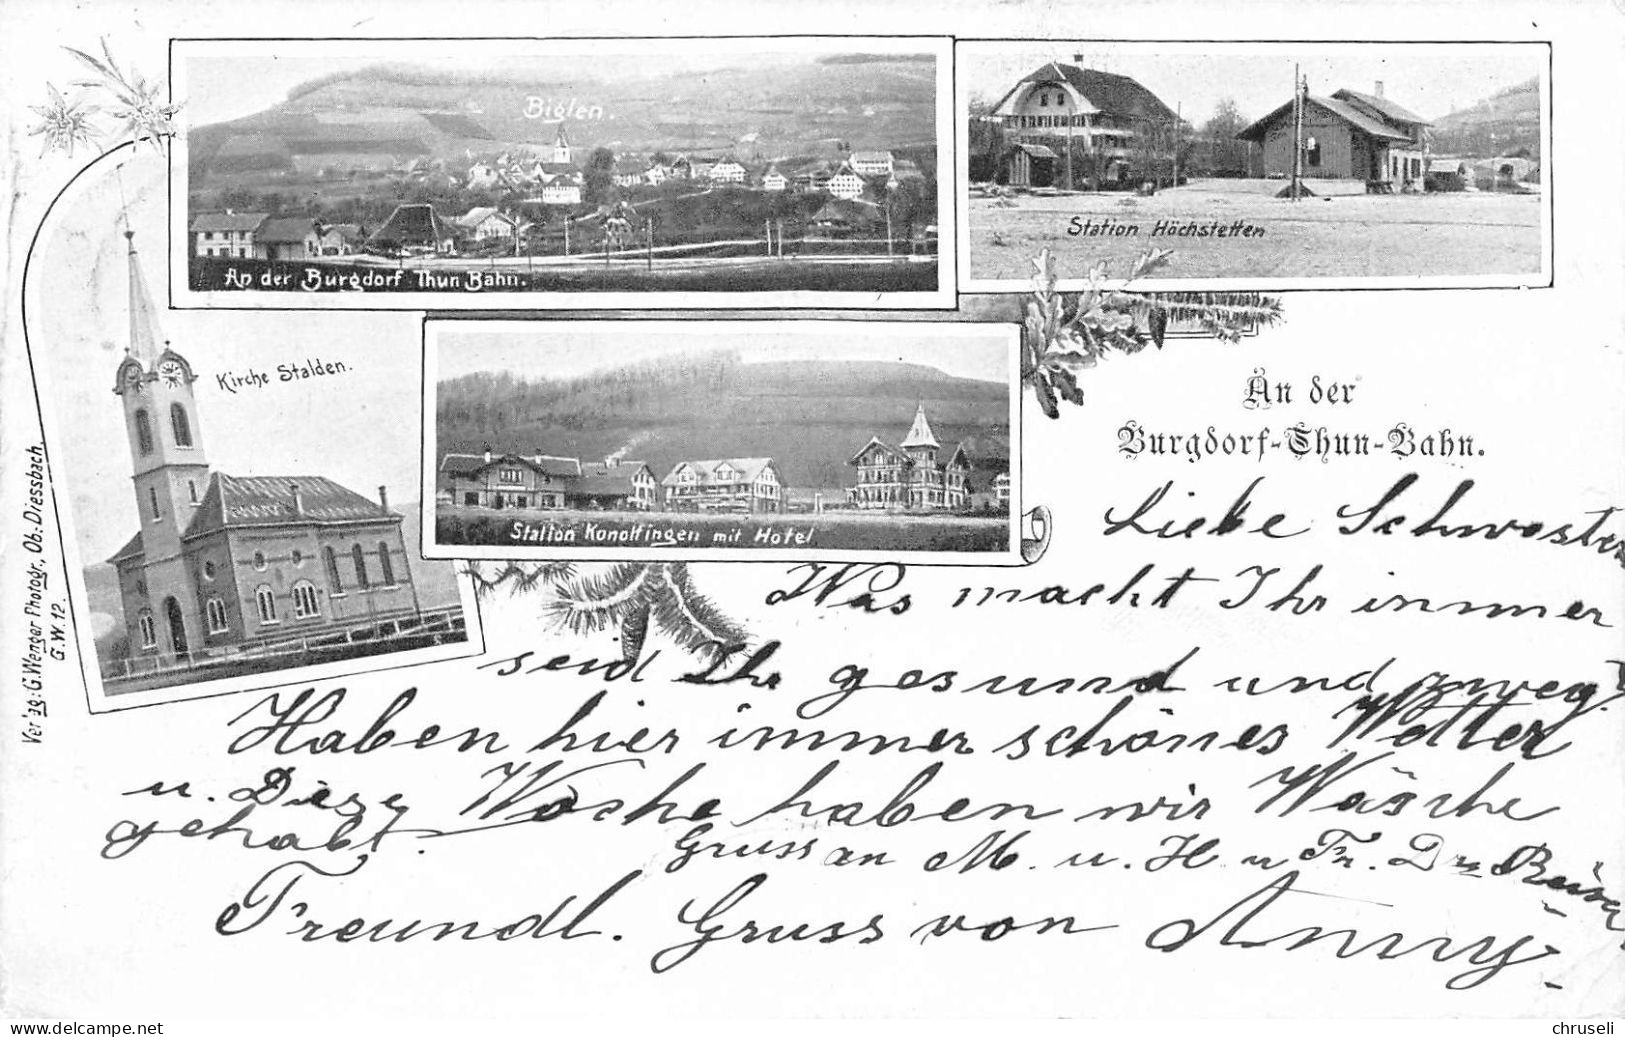 Biglen.
An der Burgdorf Thun Bahn.
Station Höchstetten
Kirche Stalden.
Station Konolfingen mit Hotel
Verlag: G. Wenger Photogr., Ob. Diessbach.
G.W. 12.
An der
Burgdorf-Thun-Bahn.
Liebe Schwester
Was macht Ihr immer
seid Ihr gesund und zweg?
Haben hier immer schönes Wetter
u. Diese Woche haben wir Wäsche
gehabt.
Gruss an M. u. H u Fr. Dr
Freundl. Gruss von Anny
www.delcampe.net
chruseli